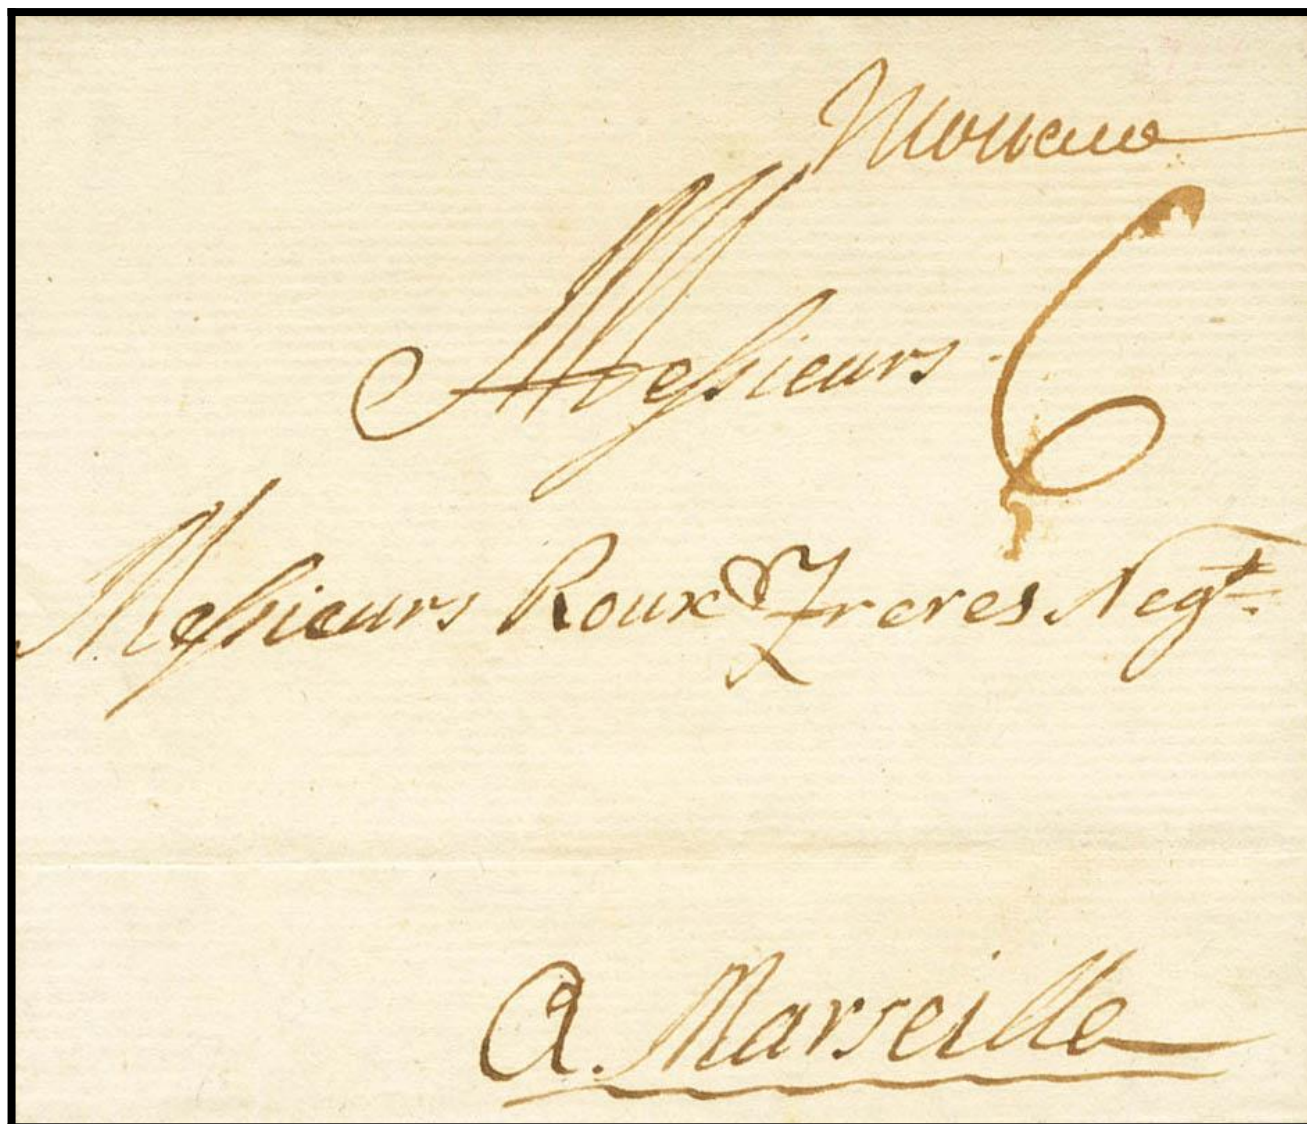 Monaco
6
Messieurs
Messieurs Roux Freres Negts
A. Marseille